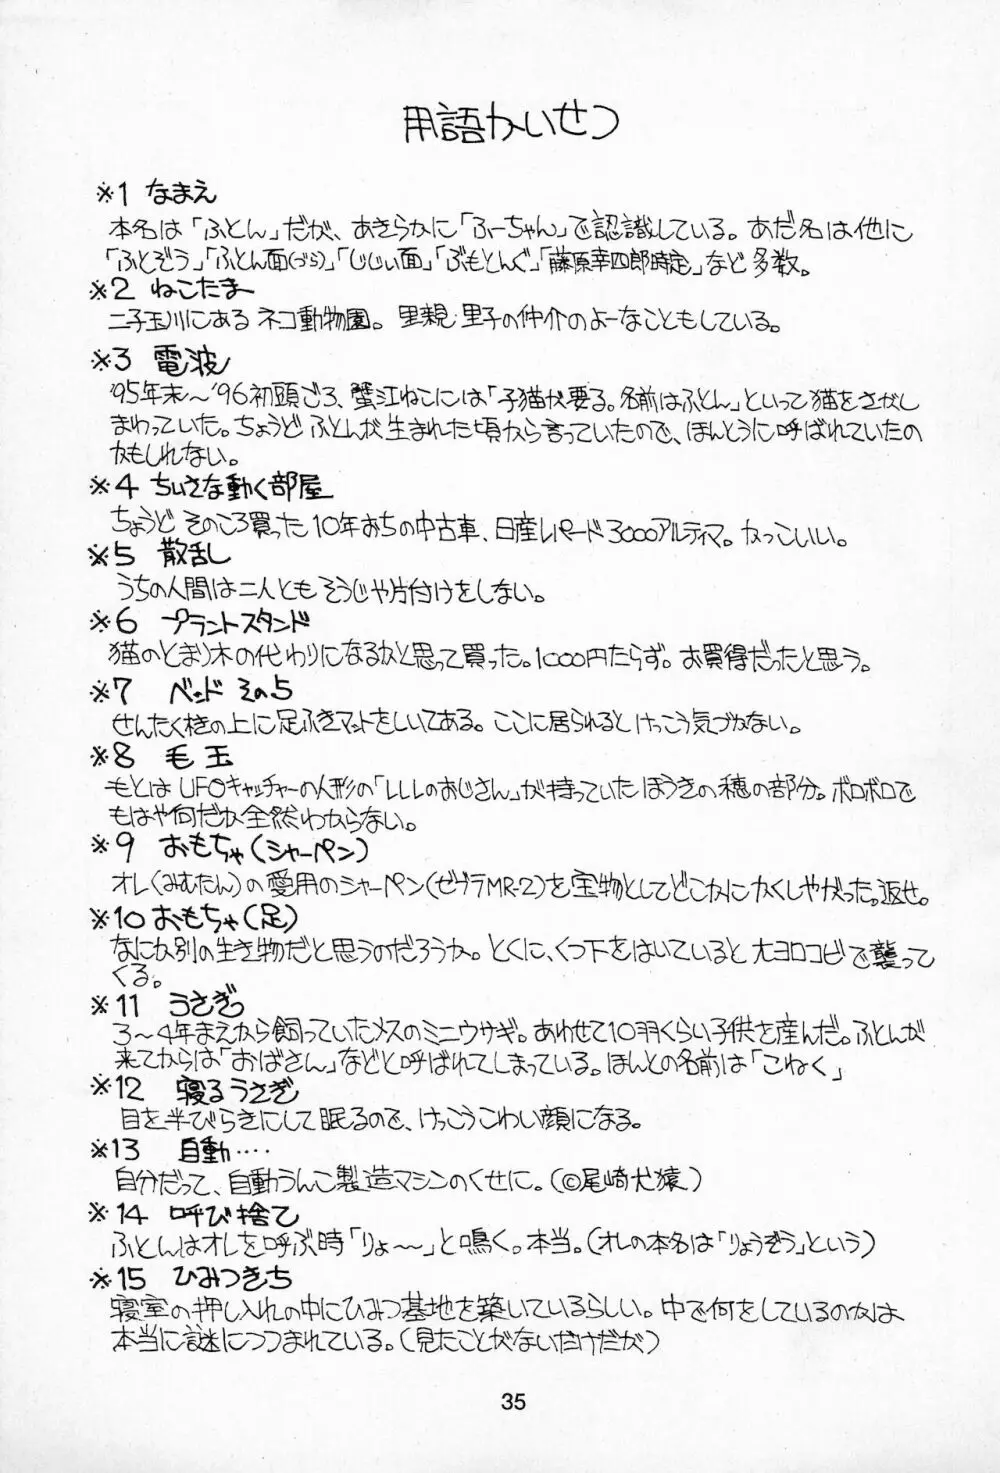 用語かいせつ
※1 なまえ
本名は「ふとん」だが、あきらかに「ふーちゃん」で認識している。あだ名は他に
「ふとぞう」「ふとん面(づら)」「じじい面」「ぶもとんぐ」「藤原幸四郎時定」など多数。
※2 ねこたまー
二子玉川にあるネコ動物園。里親・里子の仲介のよーなこともしている。
※3 電波
'95年末〜'96初頭ごろ、蟹江ねこには「子猫が要る。名前はふとん」といって猫をさがし
まわっていた。ちょうどふとんが生まれた頃から言っていたので、ほんとうに呼ばれていたの
かもしれない。
※4 ちいさな動く部屋
ちょうどそのころ買った10年おちの中古車、日産レパード3000アルティマ。かっこいい。
※5 散乱し
うちの人間は二人ともそうじや片付けをしない。
※6 プラントスタンド
猫のとまり木の代わりになるかと思って買った。1000円たらず。お買得だったと思う。
※7 ベッド その5
せんたく機の上に足ふきマットをしいてある。ここに居られるとけっこう気づかない。
※8 毛玉
もとはUFOキャッチャーの人形の「レレレのおじさん」が持っていたほうきの穂の部分。ボロボロで
もはや何だか全然わからない。
※9 おもちゃ(シャーペン)
オレ(みむたん)の愛用のシャーペン(ゼブラMR-2)を宝物としてどこかにかくしやがった。返せ。
※10 おもちゃ(足)
なにか別の生き物だと思うのだろうか。とくに、くつ下をはいていると大ヨロコビで襲って
くる。
※11 うさぎっ
3〜4年まえから飼っていたメスのミニウサギ。あわせて10羽くらい子供を産んだ。ふとんが
来てからは「おばさん」などと呼ばれてしまっている。ほんとの名前は「こねく」
※12 寝るうさぎ
目を半びらきにして眠るので、けっこうこわい顔になる。
※13 自動‥‥
自分だって、自動うんこ製造マシンのくせに。(©尾崎犬猿)
※14 呼び捨て
ふとんはオレを呼ぶ時「りょ〜〜」と鳴く。本当。(オレの本名は「りょうぞう」という)
※15 ひみつきち
寝室の押し入れの中にひみつ基地を築いているらしい。中で何をしているのかは
本当に謎につつまれている。(見たことがないだけだが)
35